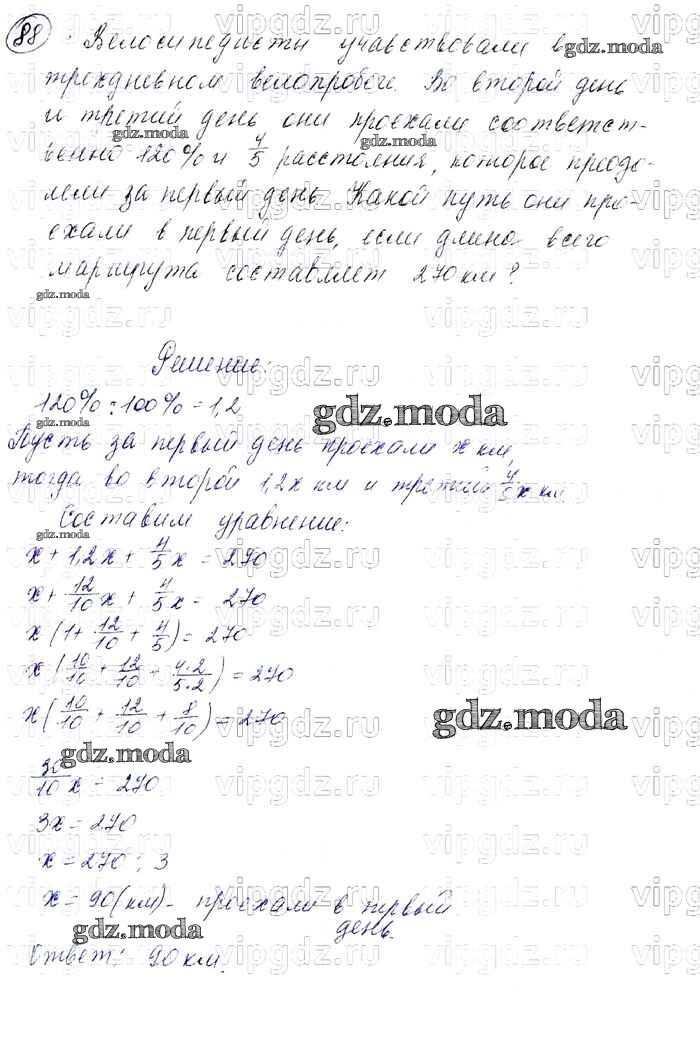 88
Велосипедисты учавствовали в
gdz.moda
трехдневном велопробеге. Во второй день
и третий день они проехали соответст-
gdz.moda
венно 120% и 4/5 расстояния, которое преодо-
лели за первый день. Какой путь они про-
ехали в первый день, если длина всего
маршрута составляет 270 км?
gdz.moda
Решение:
120% : 100% = 1,2
gdz.moda
gdz.moda
Пусть за первый день проехали x км,
тогда во второй 1,2x км и третий 4/5 x км.
Составим уравнение:
gdz.moda
x + 1,2x + 4/5 x = 270
x + 12/10 x + 4/5 x = 270
x (1 + 12/10 + 4/5) = 270
x (10/10 + 12/10 + 4·2/5·2) = 270
x (10/10 + 12/10 + 8/10) = 270
gdz.moda
gdz.moda
30/10 x = 270
3x = 270
x = 270 : 3
x = 90 (км) - проехали в первый
день.
gdz.moda
Ответ: 90 км.
vipgdz.ru